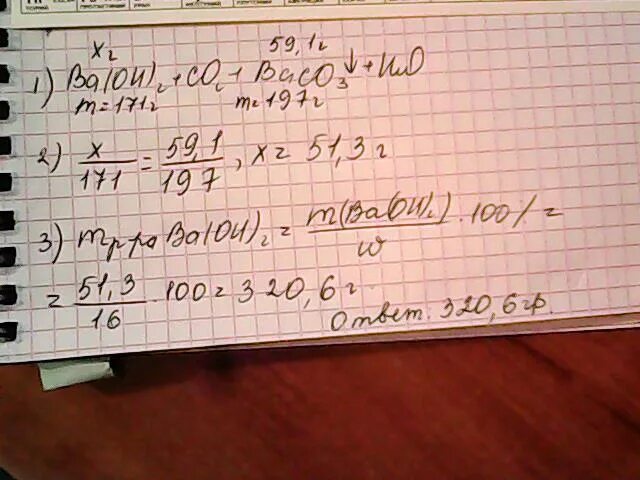 x г 59,1г
1) Ba(OH)₂ + CO₂ → BaCO₃↓ + H₂O
m = 171г m = 197г
2) x/171 = 59,1/197, x = 51,3 г
3) m р-ра Ba(OH)₂ = m(Ba(OH)₂)/w · 100% =
= 51,3/16 · 100 = 320,6 г.
Ответ: 320,6 гр.